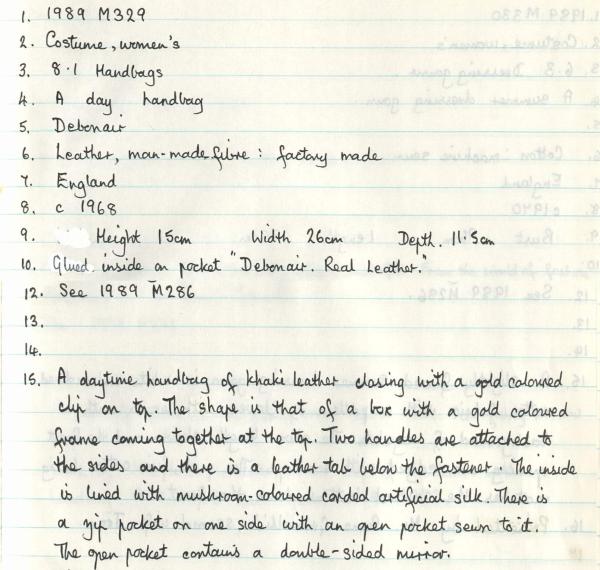 1. 1989 M329
2. Costume, women's
3. 8.1 Handbags
4. A day handbag
5. Debonair
6. Leather, man-made fibre : factory made
7. England
8. c 1968
9. Height 15cm Width 26cm Depth. 11.5cm
10. Glued inside on pocket "Debonair. Real Leather."
12. See 1989 M286
13.
14.
15. A daytime handbag of khaki leather closing with a gold coloured
clip on top. The shape is that of a box with a gold coloured
frame coming together at the top. Two handles are attached to
the sides and there is a leather tab below the fastener. The inside
is lined with mushroom-coloured corded artificial silk. There is
a zip pocket on one side with an open pocket sewn to it.
The open pocket contains a double-sided mirror.